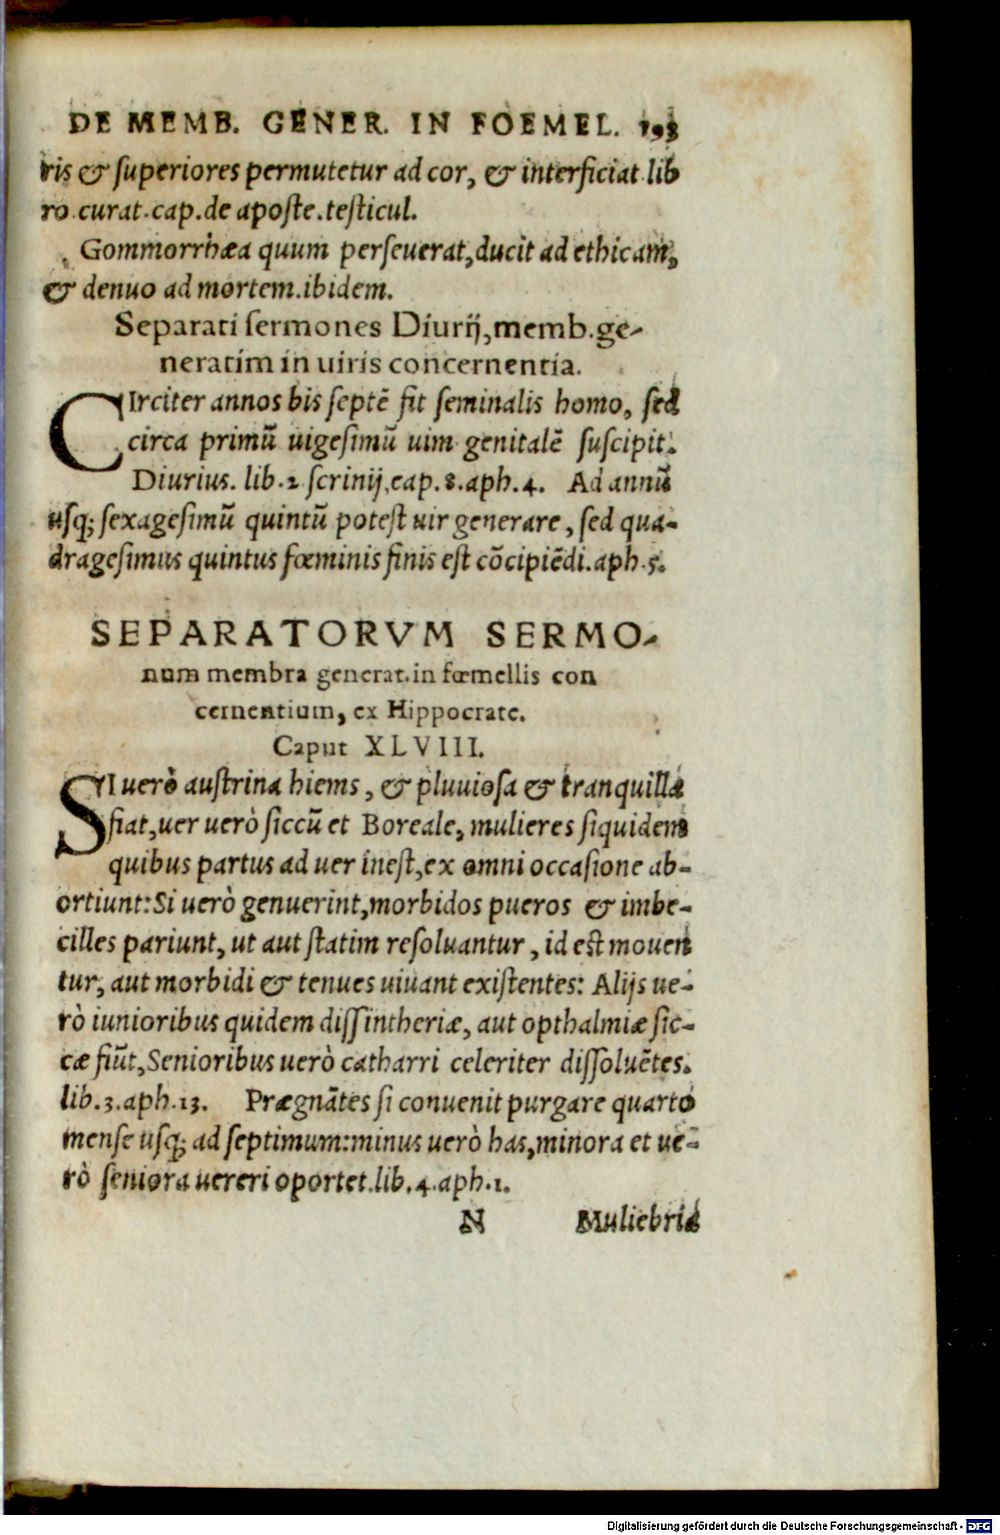 DE MEMB. GENER. IN FOEMEL. 193
ris & ſuperiores permutetur ad cor, & interficiat lib
ro curat. cap. de apoſte. teſticul.
Gommorrhæa quum perſeuerat, ducit ad ethicam,
& denuo ad mortem. ibidem.
Separati ſermones Diurij, memb. ge-
neratim in uiris concernentia.
CIrciter annos bis ſeptē fit ſeminalis homo, ſed
circa primū uigeſimū uim genitalē ſuſcipit.
Diurius. lib. 2 ſcrinij, cap. 8. aph. 4. Ad annū
uſq; ſexageſimū quintū poteſt uir generare, ſed qua-
drageſimus quintus fœminis finis eſt cōcipiēdi. aph. 5.
SEPARATORVM SERMO-
num membra generat. in fœmellis con
cernentium, ex Hippocrate.
Caput XLVIII.
SI uerò auſtrina hiems, & pluuioſa & tranquilla
fiat, uer uerò ſiccū et Boreale, mulieres ſiquidem
quibus partus ad uer ineſt, ex omni occaſione ab-
ortiunt: Si uerò genuerint, morbidos pueros & imbe-
cilles pariunt, ut aut ſtatim reſoluantur, id eſt mouen
tur, aut morbidi & tenues uiuant exiſtentes: Alijs ue-
rò iunioribus quidem diſſintheriæ, aut opthalmiæ ſic-
cæ fiūt, Senioribus uerò catharri celeriter diſſoluētes.
lib. 3. aph. 13. Prægnātes ſi conuenit purgare quarto
menſe uſq; ad ſeptimum: minus uerò has, minora et ue-
rò ſeniora uereri oportet. lib. 4. aph. 1.
N Muliebria
Digitalisierung gefördert durch die Deutsche Forschungsgemeinschaft - DFG